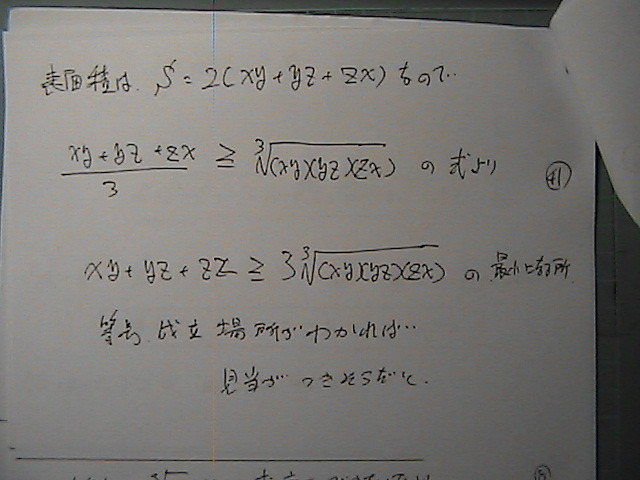 表面積は、S = 2(xy + yz + zx) なので
(xy + yz + zx)/3 ≧ ∛((xy)(yz)(zx)) の 式より
xy + yz + zx ≧ 3∛((xy)(yz)(zx)) の 最小 場所
等号 成立 場所がわかれば…
見当が つきそうだと。